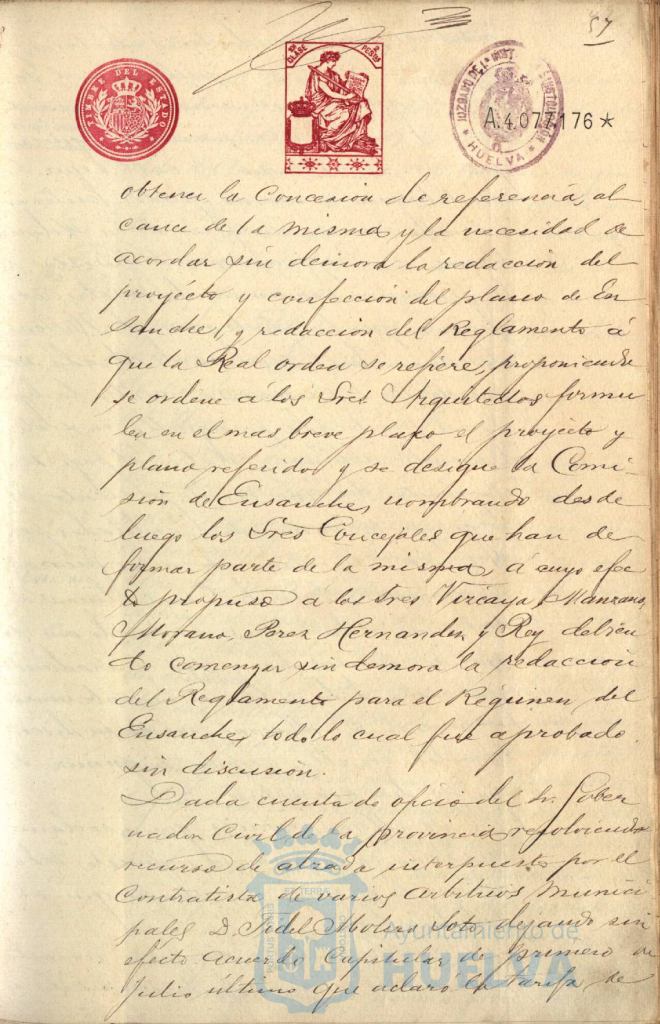 57
TIMBRE DEL ESTADO
CLASE
PESETAS
JUZGADO DE 1ª INST
HUELVA
A.4.077.176*
obtener la Concesion de referencia, al
cance de la misma y la necesidad de
acordar sin demora la redacción del
proyécto y confección del plano de En
sanche, y redaccion del Reglamento á
que la Real orden se refiere, proponiendo
se ordene á los Sres Arquitectos formu
len en el mas breve plazo el proyécto y
plano referidos y se designe la Comi-
sión de Ensanche, nombrando desde
luego los Sres Concejales que han de
formar parte de la misma, á cuyo efec
to propuso á los Sres Vizcaya, Manzano,
Morano, Perez Hernandez y Rey debien
do comenzar sin demora la redaccion
del Reglamento para el Régimen del
Ensanche, todo lo cual fué aprobado
sin discusión.
Dada cuenta de oficio del Sr. Gober
nador Civil de la provincia resolviendo
recurso de alzada interpuesto por el
Contratista de varios arbitrios Munici
pales D. Fidel Molero Soto dejando sin
efecto acuerdo Capitular de primero de
Julio último que aclaró la tarifa de
Ayuntamiento de
HUELVA